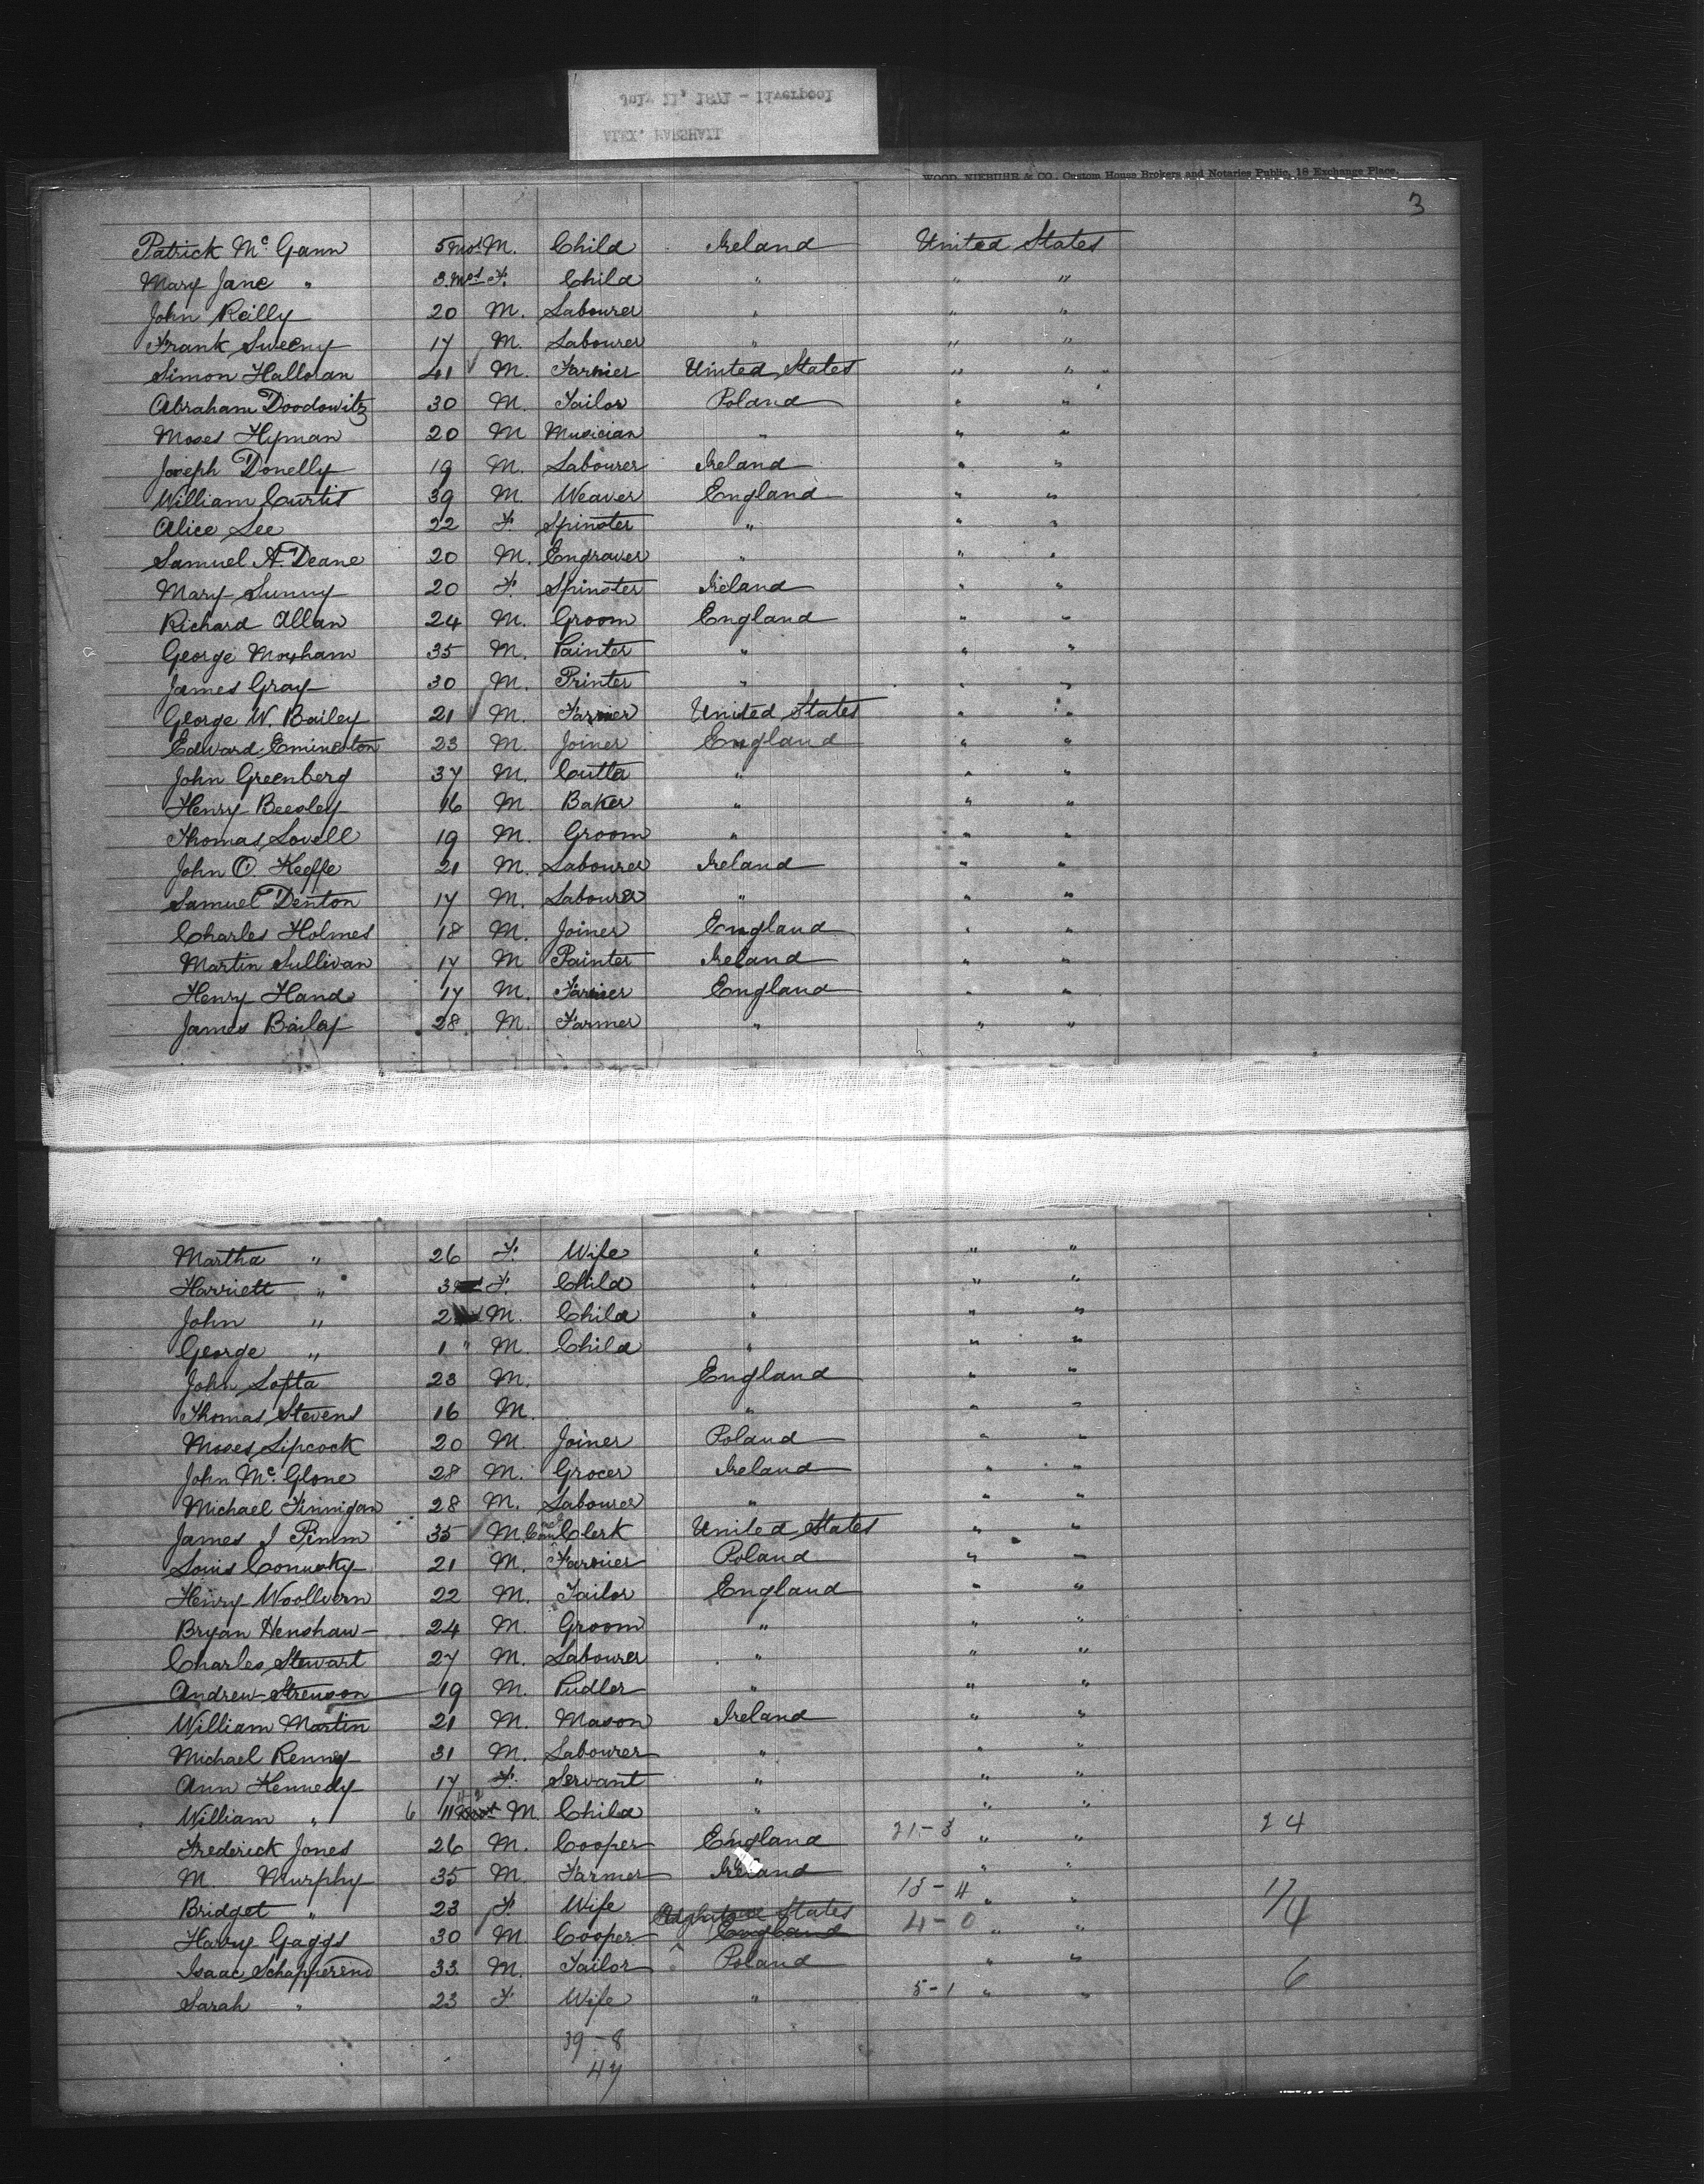 July 11, 1871 - Liverpool
ALEX. MARSHALL
WOOD, NIEBUHR & CO., Custom House Brokers and Notaries Public, 18 Exchange Place.
3
Patrick Mc Gann 5 mos M. Child Ireland United States
Mary Jane " 3 mos F. Child " " "
John Reilly 20 M. Labourer " " "
Frank Sweeny 17 M. Labourer " " "
Simon Halloran 41 M. Farmer United States " "
Abraham Doodowitz 30 M. Tailor Poland " "
Moses Hyman 20 M Musician " " "
Joseph Donelly 19 M. Labourer Ireland " "
William Curtis 39 M. Weaver England " "
Alice Lee 22 F. Spinster " " "
Samuel A. Deane 20 M. Engraver " " "
Mary Sunny 20 F. Spinster Ireland " "
Richard Allan 24 M. Groom England " "
George Moxham 35 M. Painter " " "
James Gray 30 M. Printer " " "
George W. Bailey 21 M. Farmer United States " "
Edward Emineston 23 M. Joiner England " "
John Greenberg 37 M. Cutter " " "
Henry Beesley 16 M. Baker " " "
Thomas Lovell 19 M. Groom " " "
John O. Keeffe 21 M. Labourer Ireland " "
Samuel Denton 17 M. Labourer " " "
Charles Holmes 18 M. Joiner England " "
Martin Sullivan 17 M Painter Ireland " "
Henry Hands 17 M. Farmer England " "
James Bailey 28 M. Farmer " " "
Martha " 26 F. Wife " " "
Harriett " 3 F. Child " " "
John " 2 M. Child " " "
George " 1 " M. Child " " "
John Lofta 23 M. England " "
Thomas Stevens 16 M. " " "
Moses Lipcock 20 M. Joiner Poland " "
John Mc. Glone 28 M. Grocer Ireland " "
Michael Finnigan 28 M. Labourer " " "
James J Pimm 35 M. Clerk United States " "
Louis 21 M. Farmer Poland " "
Henry Woollvern 22 M. Tailor England " "
Bryan Henshaw 24 M. Groom " " "
Charles Stewart 27 M. Labourer " " "
Andrew Strenson 19 M. Pudler " " "
William Martin 21 M. Mason Ireland " "
Michael Renny 31 M. Labourer " " "
Ann Kennedy 17 F. Servant " " "
William " 6 11 M. Child " " "
Frederick Jones 26 M. Cooper England 21-3 " " 24
M. Murphy 35 M. Farmer Ireland " "
Bridget " 23 F. Wife " 13-4 " " 17
Harry Gaggs 30 M. Cooper States England 4-0 " " 4
Isaac 33 M. Tailor Poland " "
Sarah " 23 F. Wife " 5-1 " " 6
39-8
47